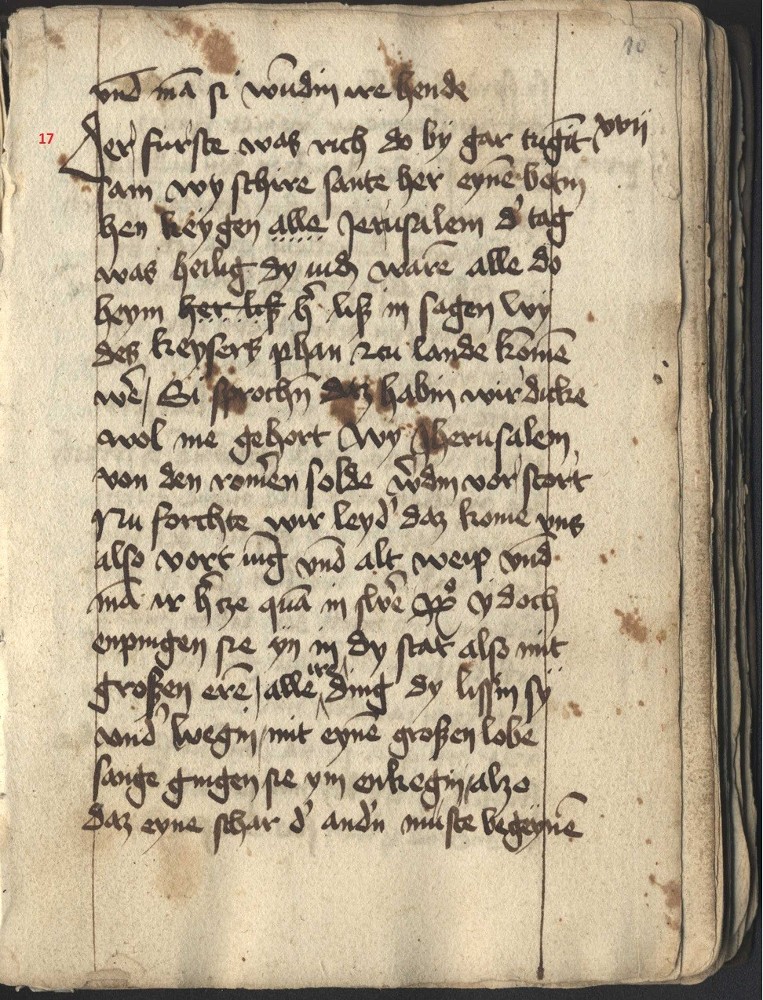 10
vnd mā si wūdin ire hende
17 Der furste was rich do by gar tugīt xvij
sam wy schire sante her eynē botin
hen keygen alle Jerusalem d' tag
was heilig dy iudī warē alle do
heym her liß h' liß in sagen wy
des keysers phan zcu lande komē
wē / Si sprochī daz habin wir dicke
wol me gehort Wy Jherusalem
von den romē'n solde w'din vor stort
Nu forchte wir leyd' daz kome vns
also vort iūg vnd alt weip vnd
mā ir h'tze quā in swē' ydoch
enpingen sie yn in dy stat also mit
großen erē / alle ire ding dy lissin sy
vnd' wegin / mit eynē großen lobe
sange gingen sie ym enkegin / alzo
daz eyne schar d' and'n muste begeynē